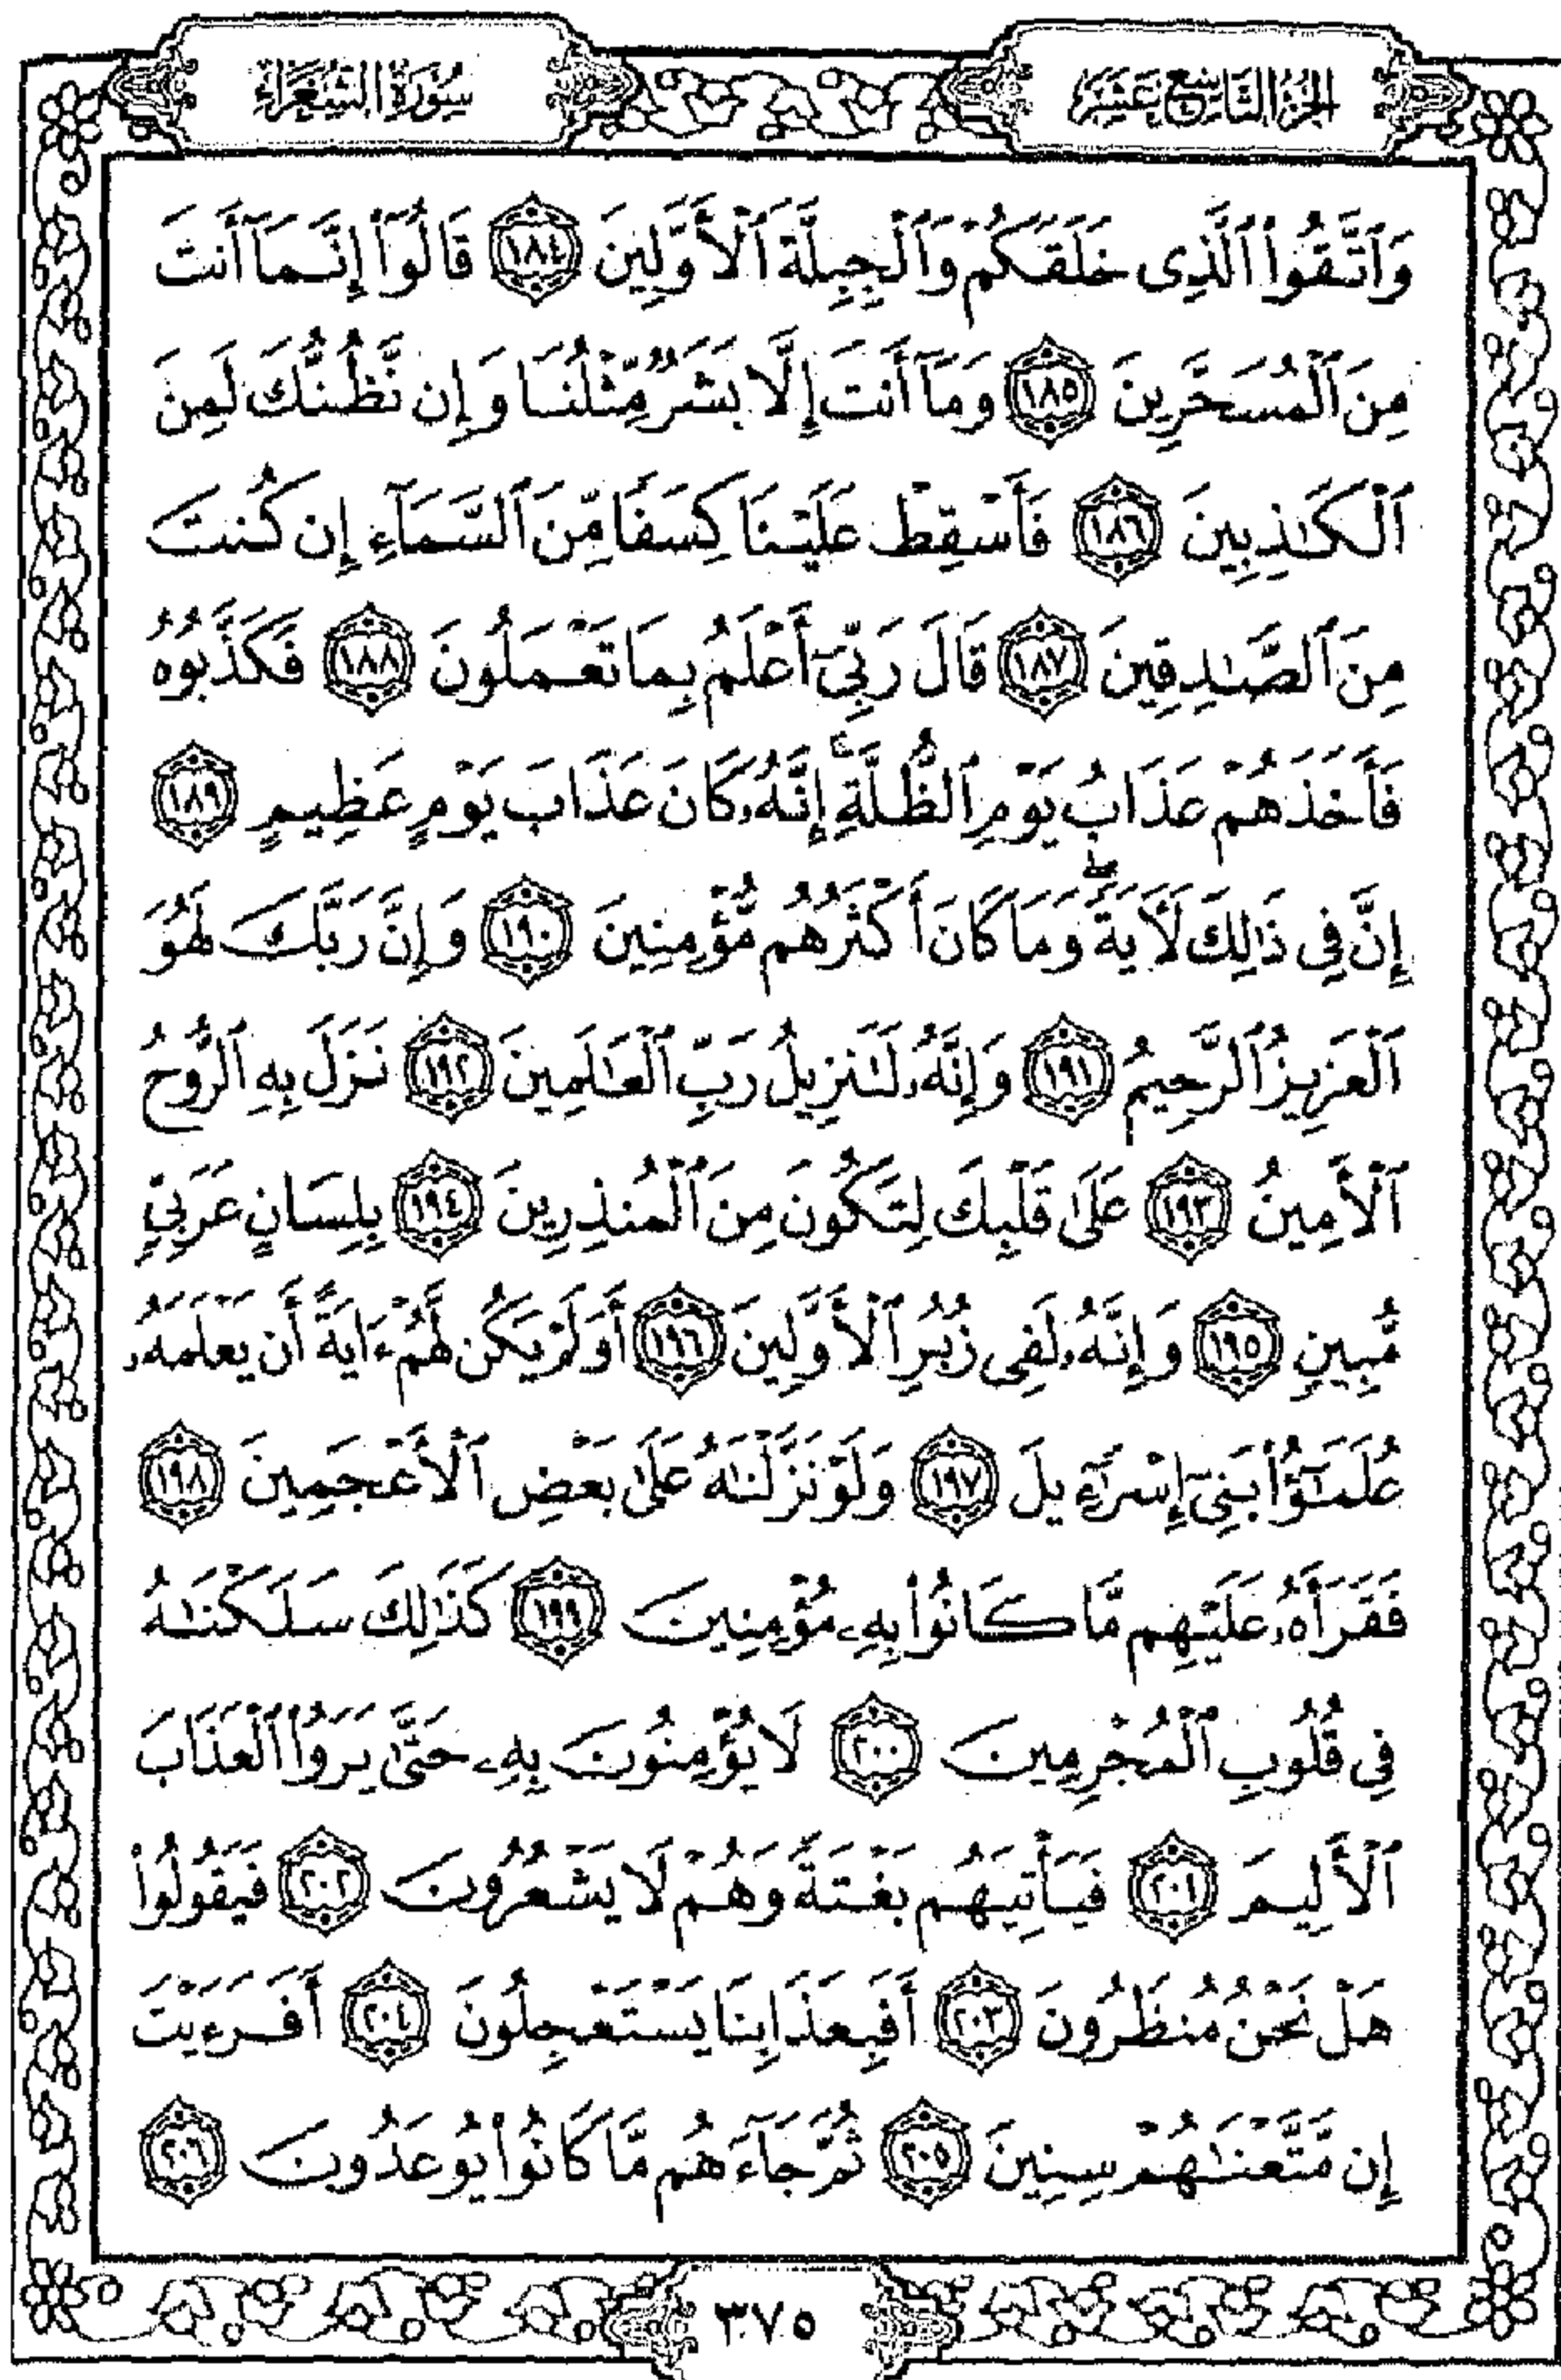 الجزء التاسع عشر
سورة الشعراء
وَٱتَّقُوا۟ ٱلَّذِى خَلَقَكُمْ وَٱلْجِبِلَّةَ ٱلْأَوَّلِينَ ١٨٤ قَالُوٓا۟ إِنَّمَآ أَنتَ
مِنَ ٱلْمُسَحَّرِينَ ١٨٥ وَمَآ أَنتَ إِلَّا بَشَرٌ مِّثْلُنَا وَإِن نَّظُنُّكَ لَمِنَ
ٱلْكَـٰذِبِينَ ١٨٦ فَأَسْقِطْ عَلَيْنَا كِسَفًا مِّنَ ٱلسَّمَآءِ إِن كُنتَ
مِنَ ٱلصَّـٰدِقِينَ ١٨٧ قَالَ رَبِّىٓ أَعْلَمُ بِمَا تَعْمَلُونَ ١٨٨ فَكَذَّبُوهُ
فَأَخَذَهُمْ عَذَابُ يَوْمِ ٱلظُّلَّةِ ۚ إِنَّهُۥ كَانَ عَذَابَ يَوْمٍ عَظِيمٍ ١٨٩
إِنَّ فِى ذَٰلِكَ لَـَٔايَةً ۖ وَمَا كَانَ أَكْثَرُهُم مُّؤْمِنِينَ ١٩٠ وَإِنَّ رَبَّكَ لَهُوَ
ٱلْعَزِيزُ ٱلرَّحِيمُ ١٩١ وَإِنَّهُۥ لَتَنزِيلُ رَبِّ ٱلْعَـٰلَمِينَ ١٩٢ نَزَلَ بِهِ ٱلرُّوحُ
ٱلْأَمِينُ ١٩٣ عَلَىٰ قَلْبِكَ لِتَكُونَ مِنَ ٱلْمُنذِرِينَ ١٩٤ بِلِسَانٍ عَرَبِىٍّ
مُّبِينٍ ١٩٥ وَإِنَّهُۥ لَفِى زُبُرِ ٱلْأَوَّلِينَ ١٩٦ أَوَلَمْ يَكُن لَّهُمْ ءَايَةً أَن يَعْلَمَهُۥ
عُلَمَـٰٓؤُا۟ بَنِىٓ إِسْرَٰٓءِيلَ ١٩٧ وَلَوْ نَزَّلْنَـٰهُ عَلَىٰ بَعْضِ ٱلْأَعْجَمِينَ ١٩٨
فَقَرَأَهُۥ عَلَيْهِم مَّا كَانُوا۟ بِهِۦ مُؤْمِنِينَ ١٩٩ كَذَٰلِكَ سَلَكْنَـٰهُ
فِى قُلُوبِ ٱلْمُجْرِمِينَ ٢٠٠ لَا يُؤْمِنُونَ بِهِۦ حَتَّىٰ يَرَوُا۟ ٱلْعَذَابَ
ٱلْأَلِيمَ ٢٠١ فَيَأْتِيَهُم بَغْتَةً وَهُمْ لَا يَشْعُرُونَ ٢٠٢ فَيَقُولُوا۟
هَلْ نَحْنُ مُنظَرُونَ ٢٠٣ أَفَبِعَذَابِنَا يَسْتَعْجِلُونَ ٢٠٤ أَفَرَءَيْتَ
إِن مَّتَّعْنَـٰهُمْ سِنِينَ ٢٠٥ ثُمَّ جَآءَهُم مَّا كَانُوا۟ يُوعَدُونَ ٢٠٦
٣٧٥